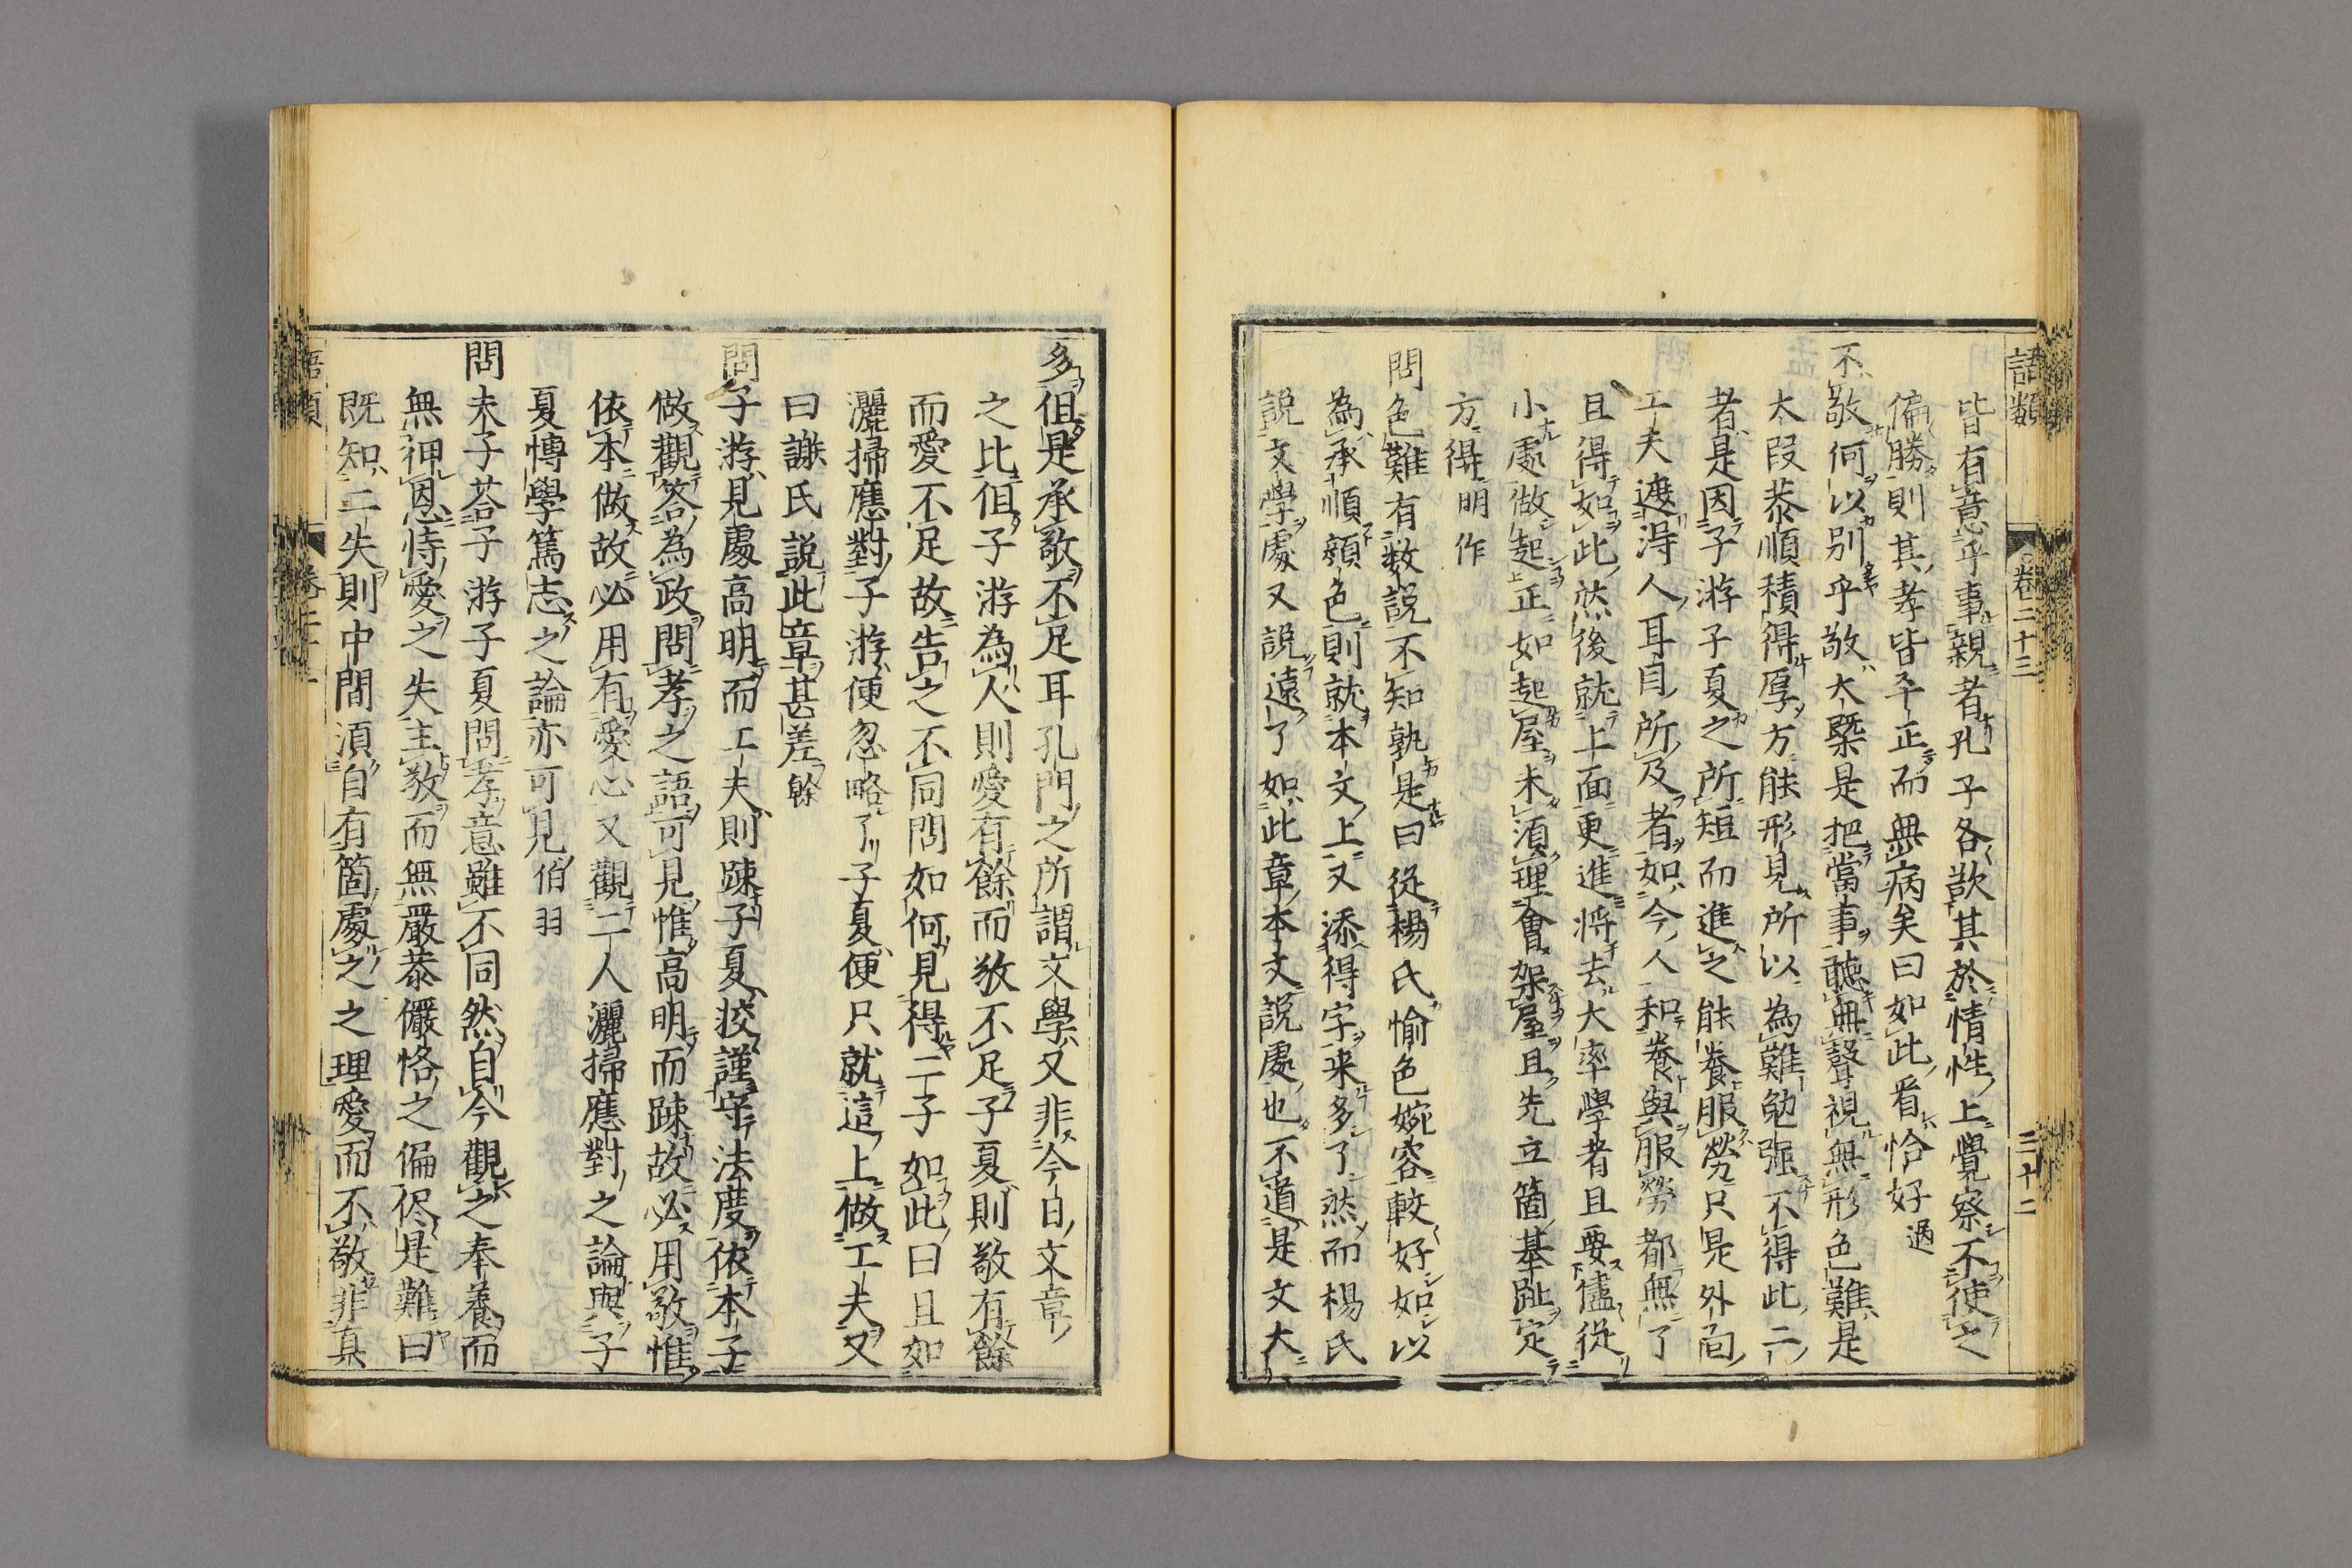 語類
卷二十三
三十二
皆有意乎事親者孔子各欲其於情性上覺察不使之
偏勝則其孝皆平正而無病矣曰如此看恰好過
不敬何以別乎敬大槩是把當事聽無聲視無形色難是
大段恭順積得厚方能形見所以為難勉强不得此二
者是因子游子夏之所短而進之能養服勞只是外面
工夫遮得人耳目所及者如今人和養與服勞都無了
且得如此然後就上面更進將去大率學者且要儘從
小處做起正如起屋未湏理會架屋且先立箇基趾定
方得明作
問色難有数說不知孰是曰從楊氏愉色婉容較好如以
為承順顔色則就本文上又添得字来多了然而楊氏
說文學處又說遠了如此章本文說處也不道是文大
多但是承敬不足耳孔門之所謂文學又非今日文章
之比但子游為人則愛有餘而敬不足子夏則敬有餘
而愛不足故告之不同問如何見得二子如此曰且如
灑掃應對子游便忽略了子夏便只就這上做工夫又
曰謝氏說此章甚差榦
問子游見處高明而工夫則踈子夏較謹守法度依本子
做觀答為政問孝之語可見惟高明而踈故必用敬惟
依本做故必用有愛心又觀二人灑掃應對之論與子
夏愽學篤志之論亦可見伯羽
問夫子荅子游子夏問孝意雖不同然自今觀之奉養而
無狎恩恃愛之失主敬而無嚴恭儼恪之偏侭是難曰
既知二失則中間湏自有箇處之之理愛而不敬非真